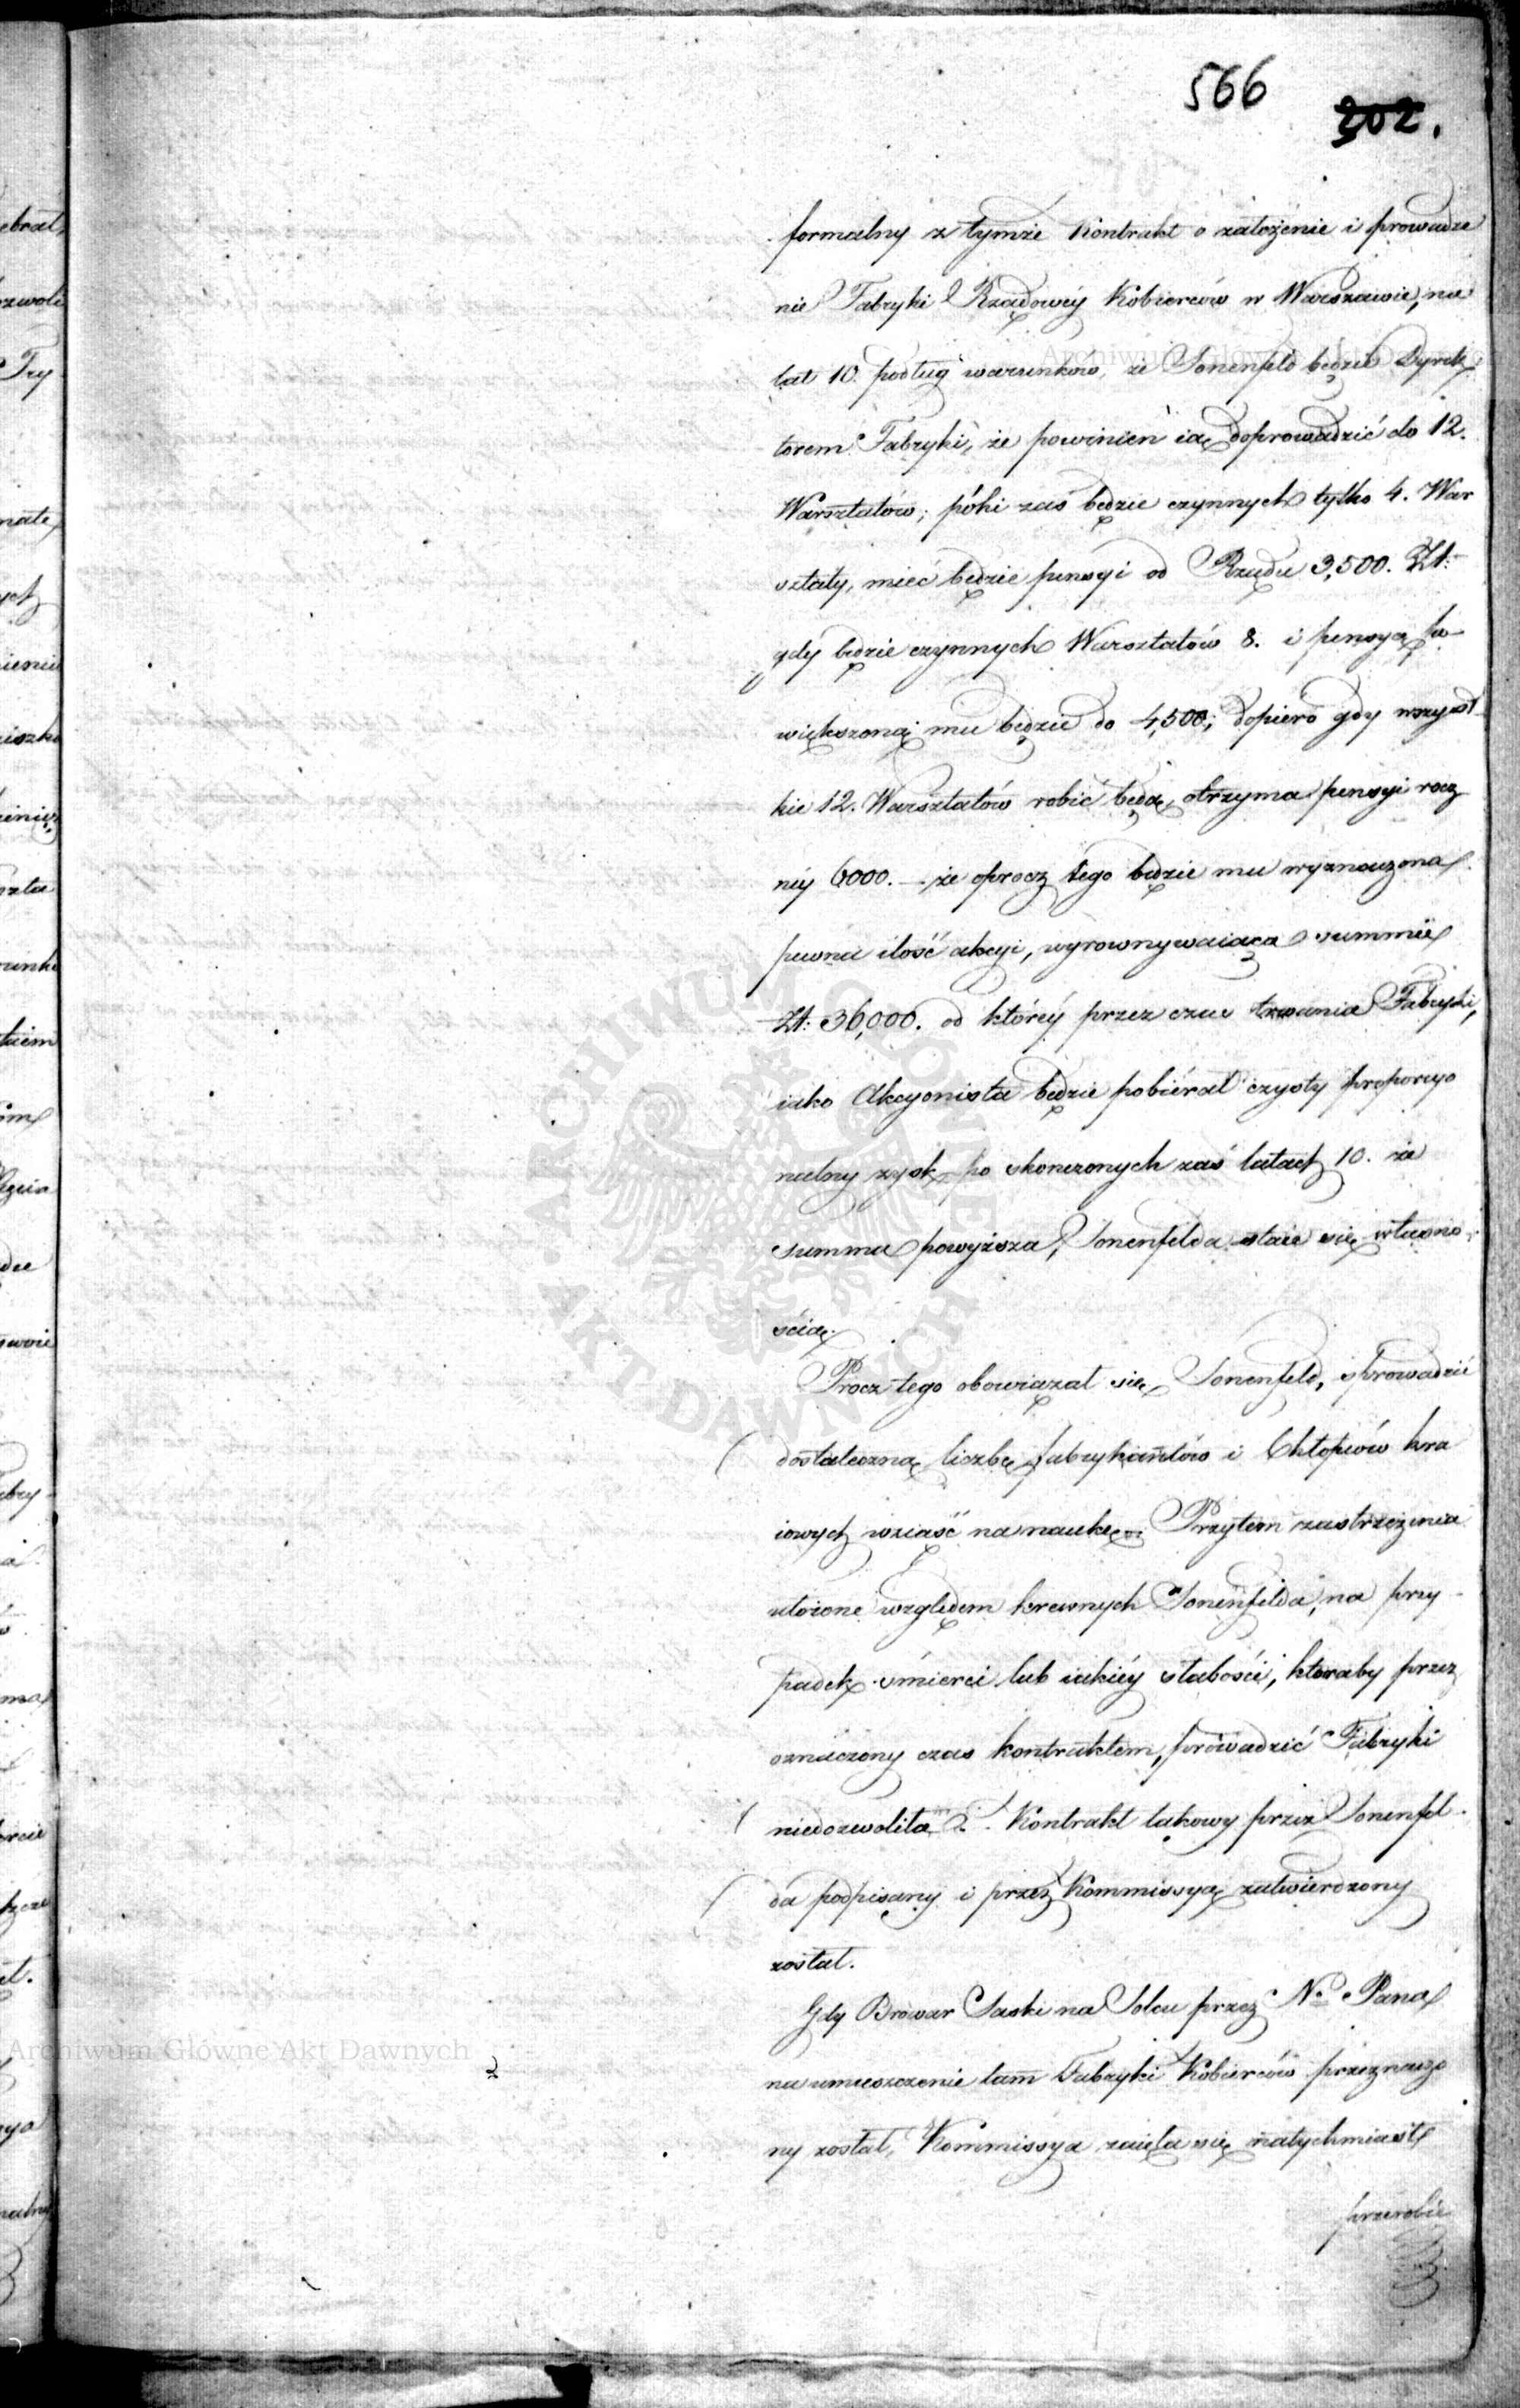 566
202.
formalny z tymże Kontrakt o założenie i prowadze
nie Fabryki Rządowéy Kobierców w Warszawie, na
lat 10. podług warunków, że Sonenfeld będzie Dyrek
torem Fabryki, że powinien ią doprowadzić do 12.
Warsztatów; póki zaś będzie czynnych tylko 4. War
sztaty, mieć będzie pensyi od Rządu 3,500. Zł:
gdy będzie czynnych Warsztatów 8. i pensya po-
większoną mu będzie do 4,500; dopiero gdy wszyst
kie 12. Warsztatów robić będą, otrzyma pensyi rocz
néy 6000. — że oprocz tego będzie mu wyznaczona
pewna ilość akcyi, wyrownywaiąca summie
Zł: 36,000. od któréy przez czas trwania Fabryki,
iako Akcyonista będzie pobiérał czysty proporcyo
nalny zysk, po skonczonych zaś latach 10. że
summa powyższa, Sonenfelda staie się własno-
ścią.
Procz tego obowiązał się Sonenfeld, sprowadzić
dostateczną liczbę fabrykantów i Chłopców kra
iowych wziaść na naukę. Przytem zastrzeżenia
ułożone względem krewnych Sonenfelda, na przy-
padek śmierci lub iakiéy słabości, ktoraby przez
oznaczony czas kontraktem, prowadzić Fabryki
niedozwoliła. Kontrakt takowy przez Sonenfel-
da podpisany i przez Kommissyą zatwierdzony
został.
Gdy Browar Saski na Solcu przez N. Pana
na umieszczenie tam Fabryki Kobierców przeznaczo
ny został, Kommissya zaięła się natychmiast
przerobie
Archiwum Główne Akt Dawnych
ARCHIWUM GŁÓWNE AKT DAWNYCH
Archiwum Główne Akt Dawnych